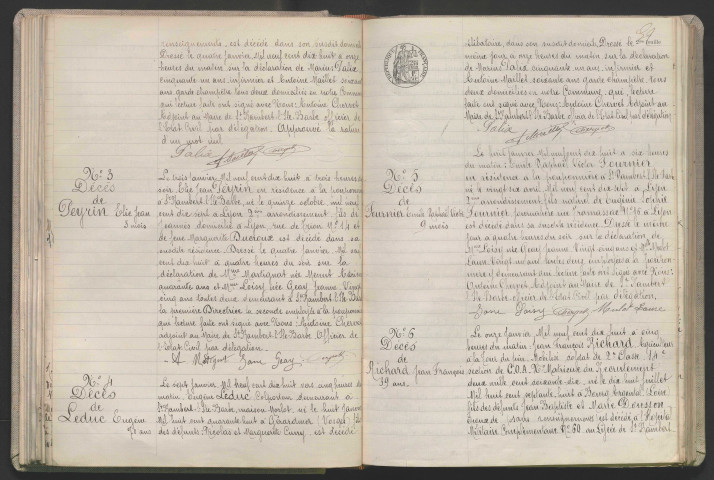 renseignements, est décédé dans son susdit domicile
Dressé le quatre janvier Mil neuf cent dix huit à onze
heures du matin sur la déclaration de Marius Palix
cinquante un ans infirmier et Antoine Maillet soixante
ans garde champêtre tous deux domiciliés en notre Commune
qui lecture faite ont signé avec Nous Antoine Chervet
Adjoint au Maire de St Rambert l'Ile Barbe officier de
l'Etat Civil par délégation. Approuvé la rature
d'un mot nul
Palix
No 3
Décès
de
Peyrin Elie Jean
3 mois
Le trois janvier Mil neuf cent dix huit à trois heures du
soir Elie Jean Peyrin en résidence à la pouponnière
à St Rambert l'Ile Barbe, né le quinze octobre mil neuf
cent dix sept à Lyon 2me arrondissement, fils de
Jeannes domicilié à Lyon rue de Trion No 14 et
de Marguerite est décédé dans sa
susdite résidence. Dressé le quatre janvier Mil neuf
cent dix huit à quatre heures du soir sur la
déclaration de Mme Martignat née
quarante ans et Mme Loisy née Geay Jeanne Vingt
cinq ans toutes deux demeurant à St Rambert l'Ile Barbe
la première la seconde employée à la pouponnière
qui lecture faite ont signé avec Nous Antoine Chervet
adjoint au Maire de St Rambert l'Ile Barbe Officier de
l'Etat Civil par délégation.
No 4
Décès
de
Leduc Eugène
Le sept janvier Mil neuf cent dix huit à cinq heures du
matin Eugène Leduc Colporteur demeurant à
St Rambert l'Ile Barbe, maison Morlot, né le huit janvier
Mil huit cent quarante huit à Gérardmer (Vosges) fils
des défunts Nicolas et Marguerite Cuny est décédé
29
célibataire, dans son susdit domicile. Dressé le
même jour à onze heures du matin sur la déclaration
de Marius Palix cinquante un ans infirmier et
Antoine Maillet soixante ans garde champêtre, tous
deux domiciliés en notre Commune, qui lecture
faite ont signé avec Nous Antoine Chervet Adjoint au
Maire de St Rambert l'Ile Barbe officier de l'Etat Civil par délégation
Palix
No 5
Décès
de
Fournier
9 mois
Le huit janvier Mil neuf cent dix huit à dix heures
du matin Victor Fournier
en résidence à la pouponnière à St Rambert l'Ile Barbe
né le vingt six avril Mil neuf cent dix sept à Lyon
2me arrondissement, fils naturel de Eugénie Sophie
Fournier, domiciliée rue No 16 à Lyon
est décédé dans sa susdite résidence Dressé le même
jour à quatre heures du soir sur la déclaration de
Mme Loisy née Geay Jeanne Vingt cinq ans et
Laure vingt huit ans toutes deux employées à la pouponnière
y demeurant qui lecture faite ont signé avec Nous
Antoine Chervet Adjoint au Maire de St Rambert
l'Ile Barbe officier de l'Etat Civil par délégation,
No 6
Décès
de
Richard Jean François
39 ans
Le onze janvier Mil neuf cent dix huit à cinq
heures du matin Jean François Richard, Cultivateur
à La Tour du Pin, Mobilisé soldat de 2me Classe 14e
section de C.O.A. No Matricule du Recrutement
deux mille cent soixante dix, né le dix juillet
Mil huit cent soixante huit à
fils des défunts Jean Baptiste et Marie
sans renseignements est décédé à l'Hôpital
Militaire Complémentaire No 50 au Lycée de St Rambert